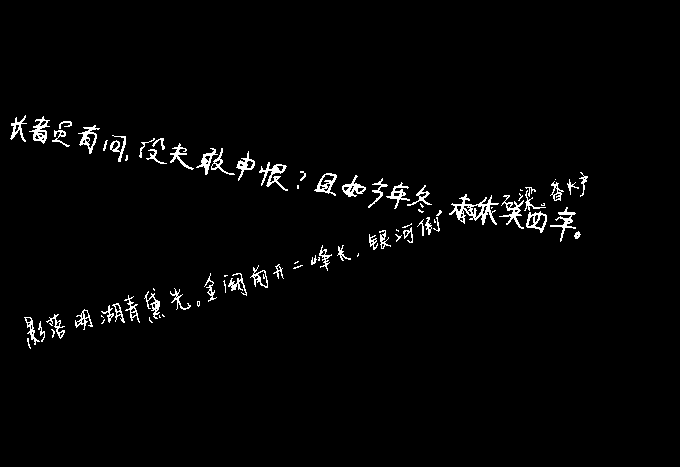 长者虽有问,役夫敢申恨?且如今年冬,未休关西卒。
影落明湖青黛光。金阙前开二峰长,银河倒挂三石梁。香炉